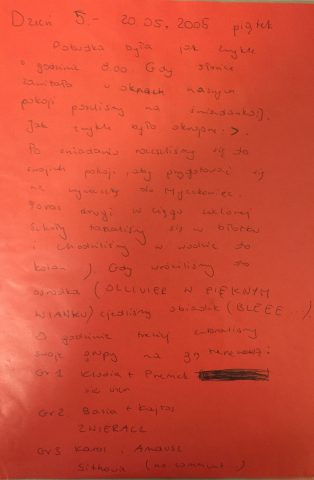 Dzień 5.- 20.05.2005 piątek
Pobudka była jak zwykle
o godzinie 8.00. Gdy słońce
zawitało w oknach naszych
pokoi poszliśmy na śniadanko:).
Jak zwykle było okropne :>.
Po śniadaniu rozeszliśmy się do
swoich pokoi, aby przygotować się
na wycieczkę do Myczkowiec.
Poraz drugi w ciągu zielonej
szkoły taplaliśmy się w błotku
i chodziliśmy w wodzie do
kolan :). Gdy wróciliśmy do
ośrodka (OLLIVIEE W PIĘKNYM
WIANKU) zjedliśmy obiadek (BLEEE...)
O godzinie trzeciej zebraliśmy
swoje grupy na grę terenową:
Gr 1 Klaudia + Przemek
się wie
Gr 2 Basia + Kajtos
ZWIERACZ
Gr 3 Karol, Amadeusz